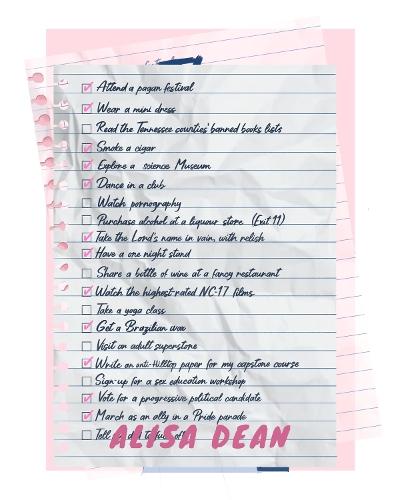 Attend a pagan festival
Wear a mini dress
Read the Tennessee counties' banned books lists
Smoke a cigar
Explore a science Museum
Dance in a club
Watch pornography
Purchase alcohol at a liquour store (Exit 11)
Take the Lord's name in vain, with relish
Have a one night stand
Share a bottle of wine at a fancy restaurant
Watch the highest-rated NC-17 films.
Take a yoga class
Get a Brazilian wax
Visit an adult superstore
Write an anti-Hilltop paper for my capstone course
Sign-up for a sex education workshop
Vote for a progressive political candidate
March as an ally in a Pride parade
Tell dad to off
ALISA DEAN